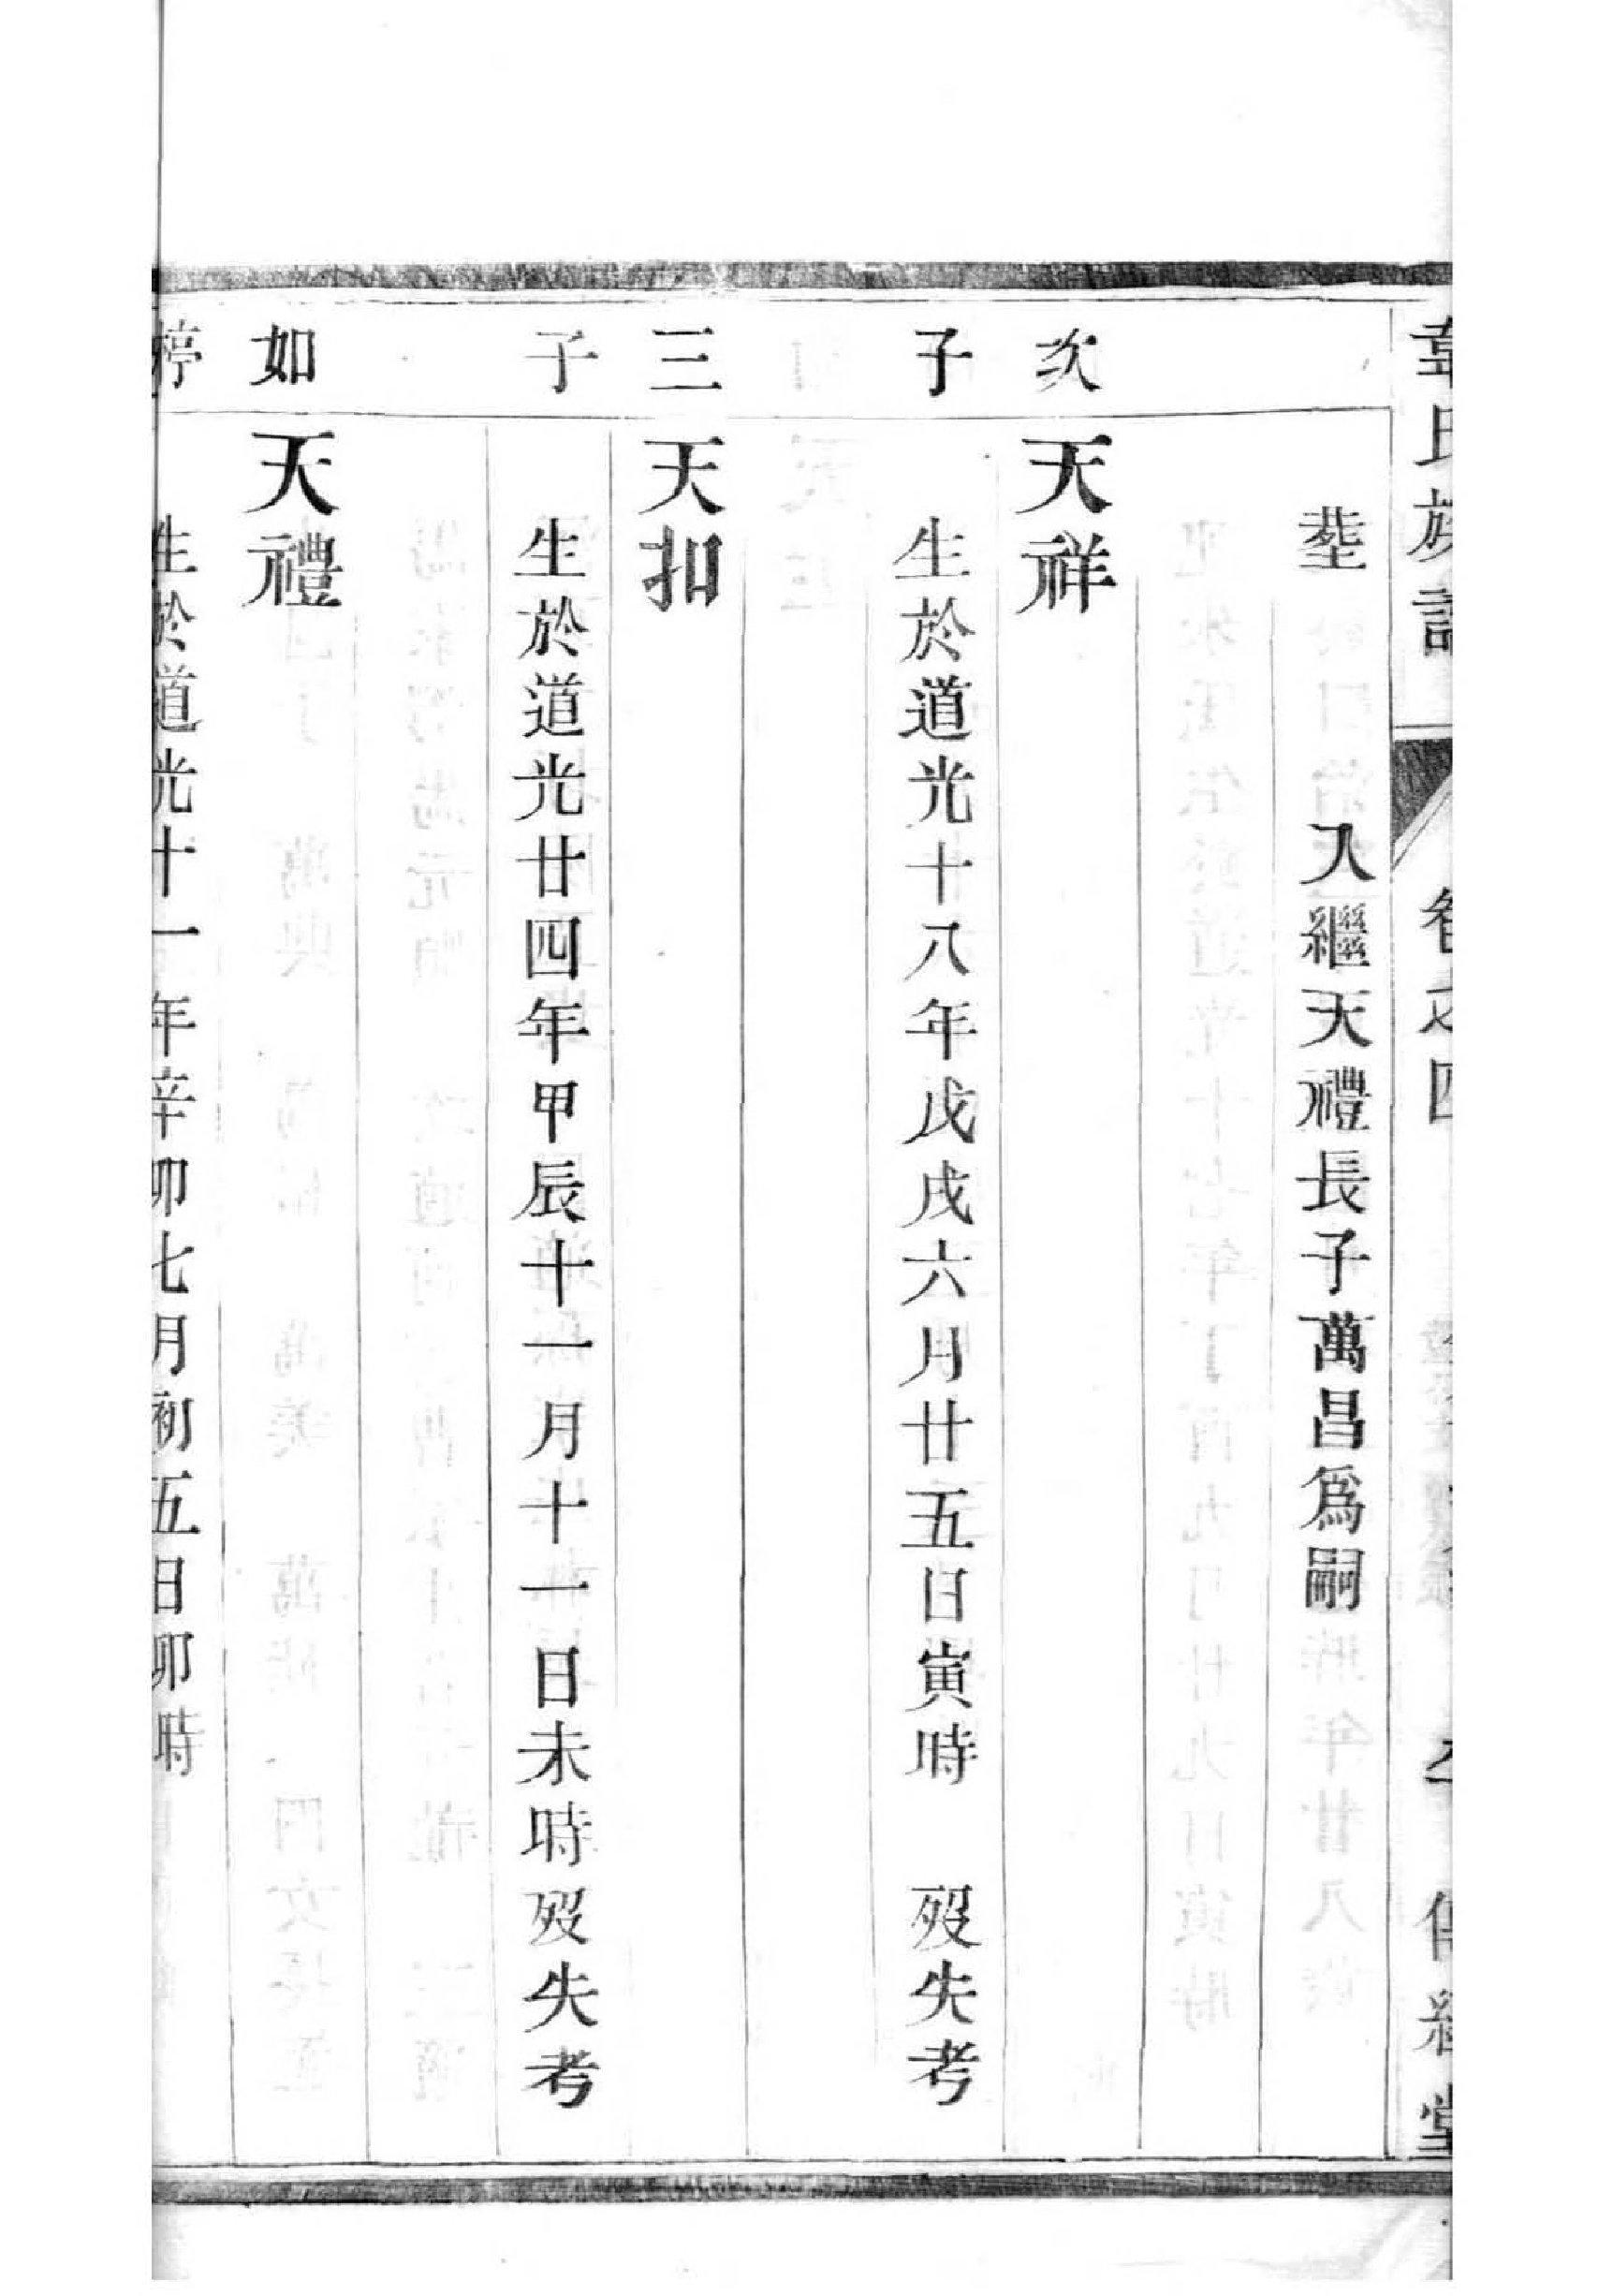 章氏族譜 卷之四 傳經堂
塟 入繼天禮長子萬昌爲嗣
次 天祥
子 生於道光十八年戊戌六月廿五日寅時 歿失考
三 天扣
子 生於道光廿四年甲辰十一月十一日未時歿失考
如 天禮
樗 生於道光十一年辛卯七月初五日卯時